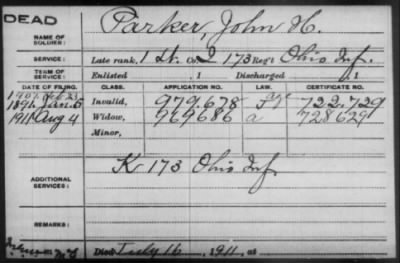 DEAD
NAME OF SOLDIER: Parker, John H.
SERVICE: Late rank, 1 Lt. Co. I 173 Reg't Ohio Inf.
TERM OF SERVICE: Enlisted , 1 Discharged , 1
DATE OF FILING. CLASS. APPLICATION NO. LAW. CERTIFICATE NO.
1907 Feb 23
1891. Jan. 5 Invalid, 979.678 Age 722.729
1911 Aug 4 Widow, 969686 a 728629
Minor,
ADDITIONAL SERVICES: K 173 Ohio Inf
REMARKS:
Died July 16, 1911, at